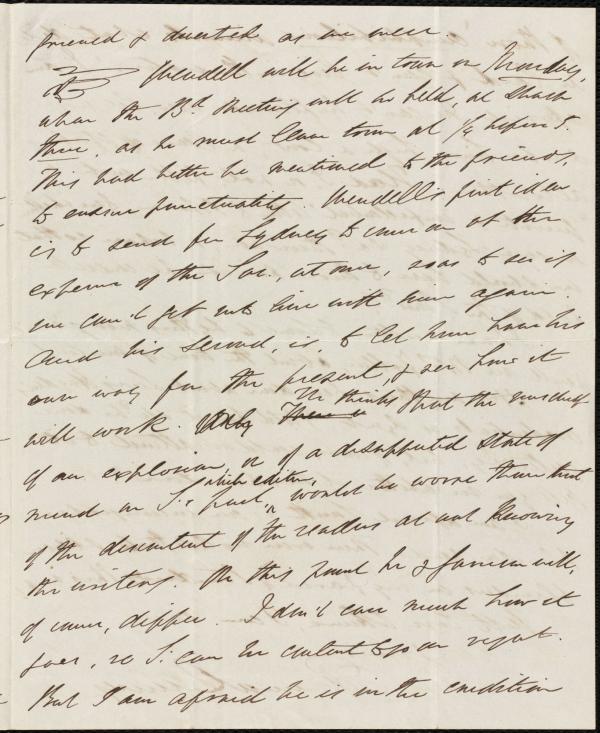 grieved & diverted as we were.
Wendell will be in town on Monday,
when the Bd Meeting will be held, at
three, as he must leave town at 1/4 before 5.
This had better be mentioned to the friends,
to ensure punctuality. Wendell's first idea
is to send for Sydney to come on at the
expense of the Soc., at once, so as to see if
we can't get into line with him again.
And his second, is, to let him have his
own way for the present, & see how it
will work. He thinks that the mischief
of an explosion, or of a dissatisfied state of
mind on S.'s part, while editor, would be worse than that
of the discontent of the readers at not knowing
the writers. On this point he & Garrison will,
of course, differ. I don't care much how it
goes, so S. can be content to go on right.
But I am afraid he is in the condition